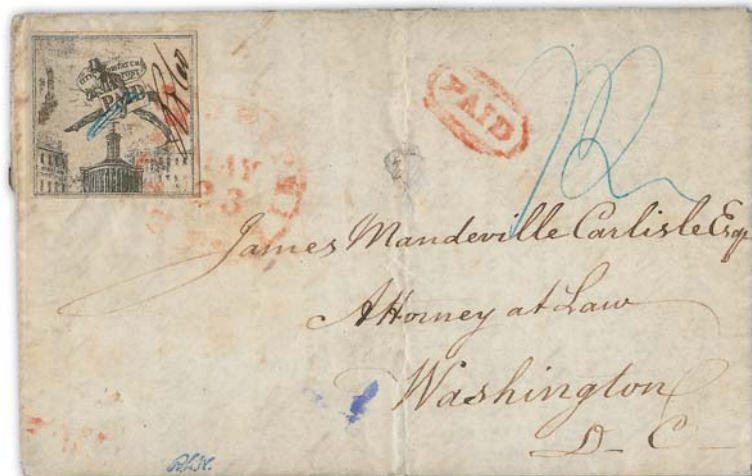 PAID
PAID
12
AY
23
James Mandeville Carlisle Esqr
Attorney at Law
Washington
D. C.